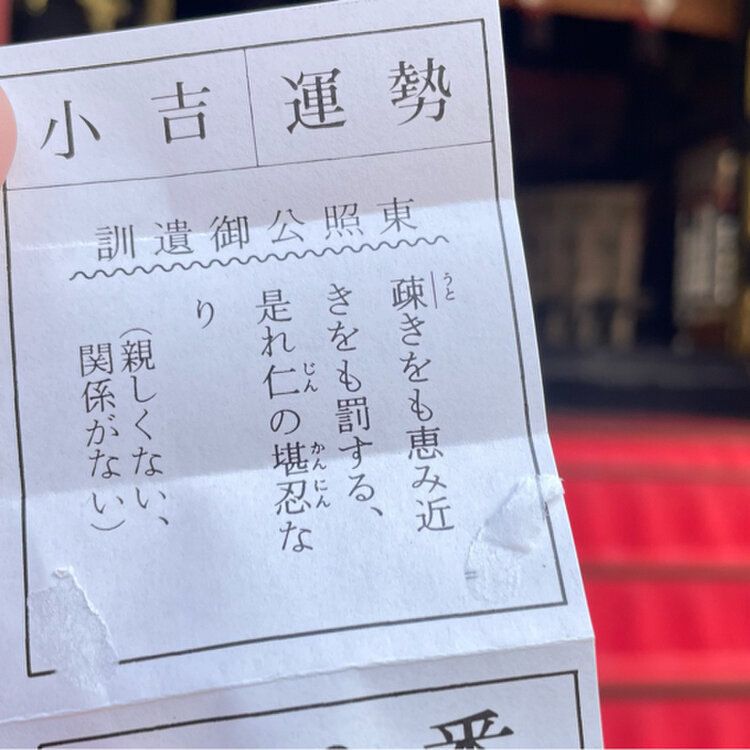 小吉 運勢
東照公御遺訓
疎きをも恵み近
うと
きをも罰する、
是れ仁の堪忍な
じん かんにん
り
(親しくない、
関係がない)